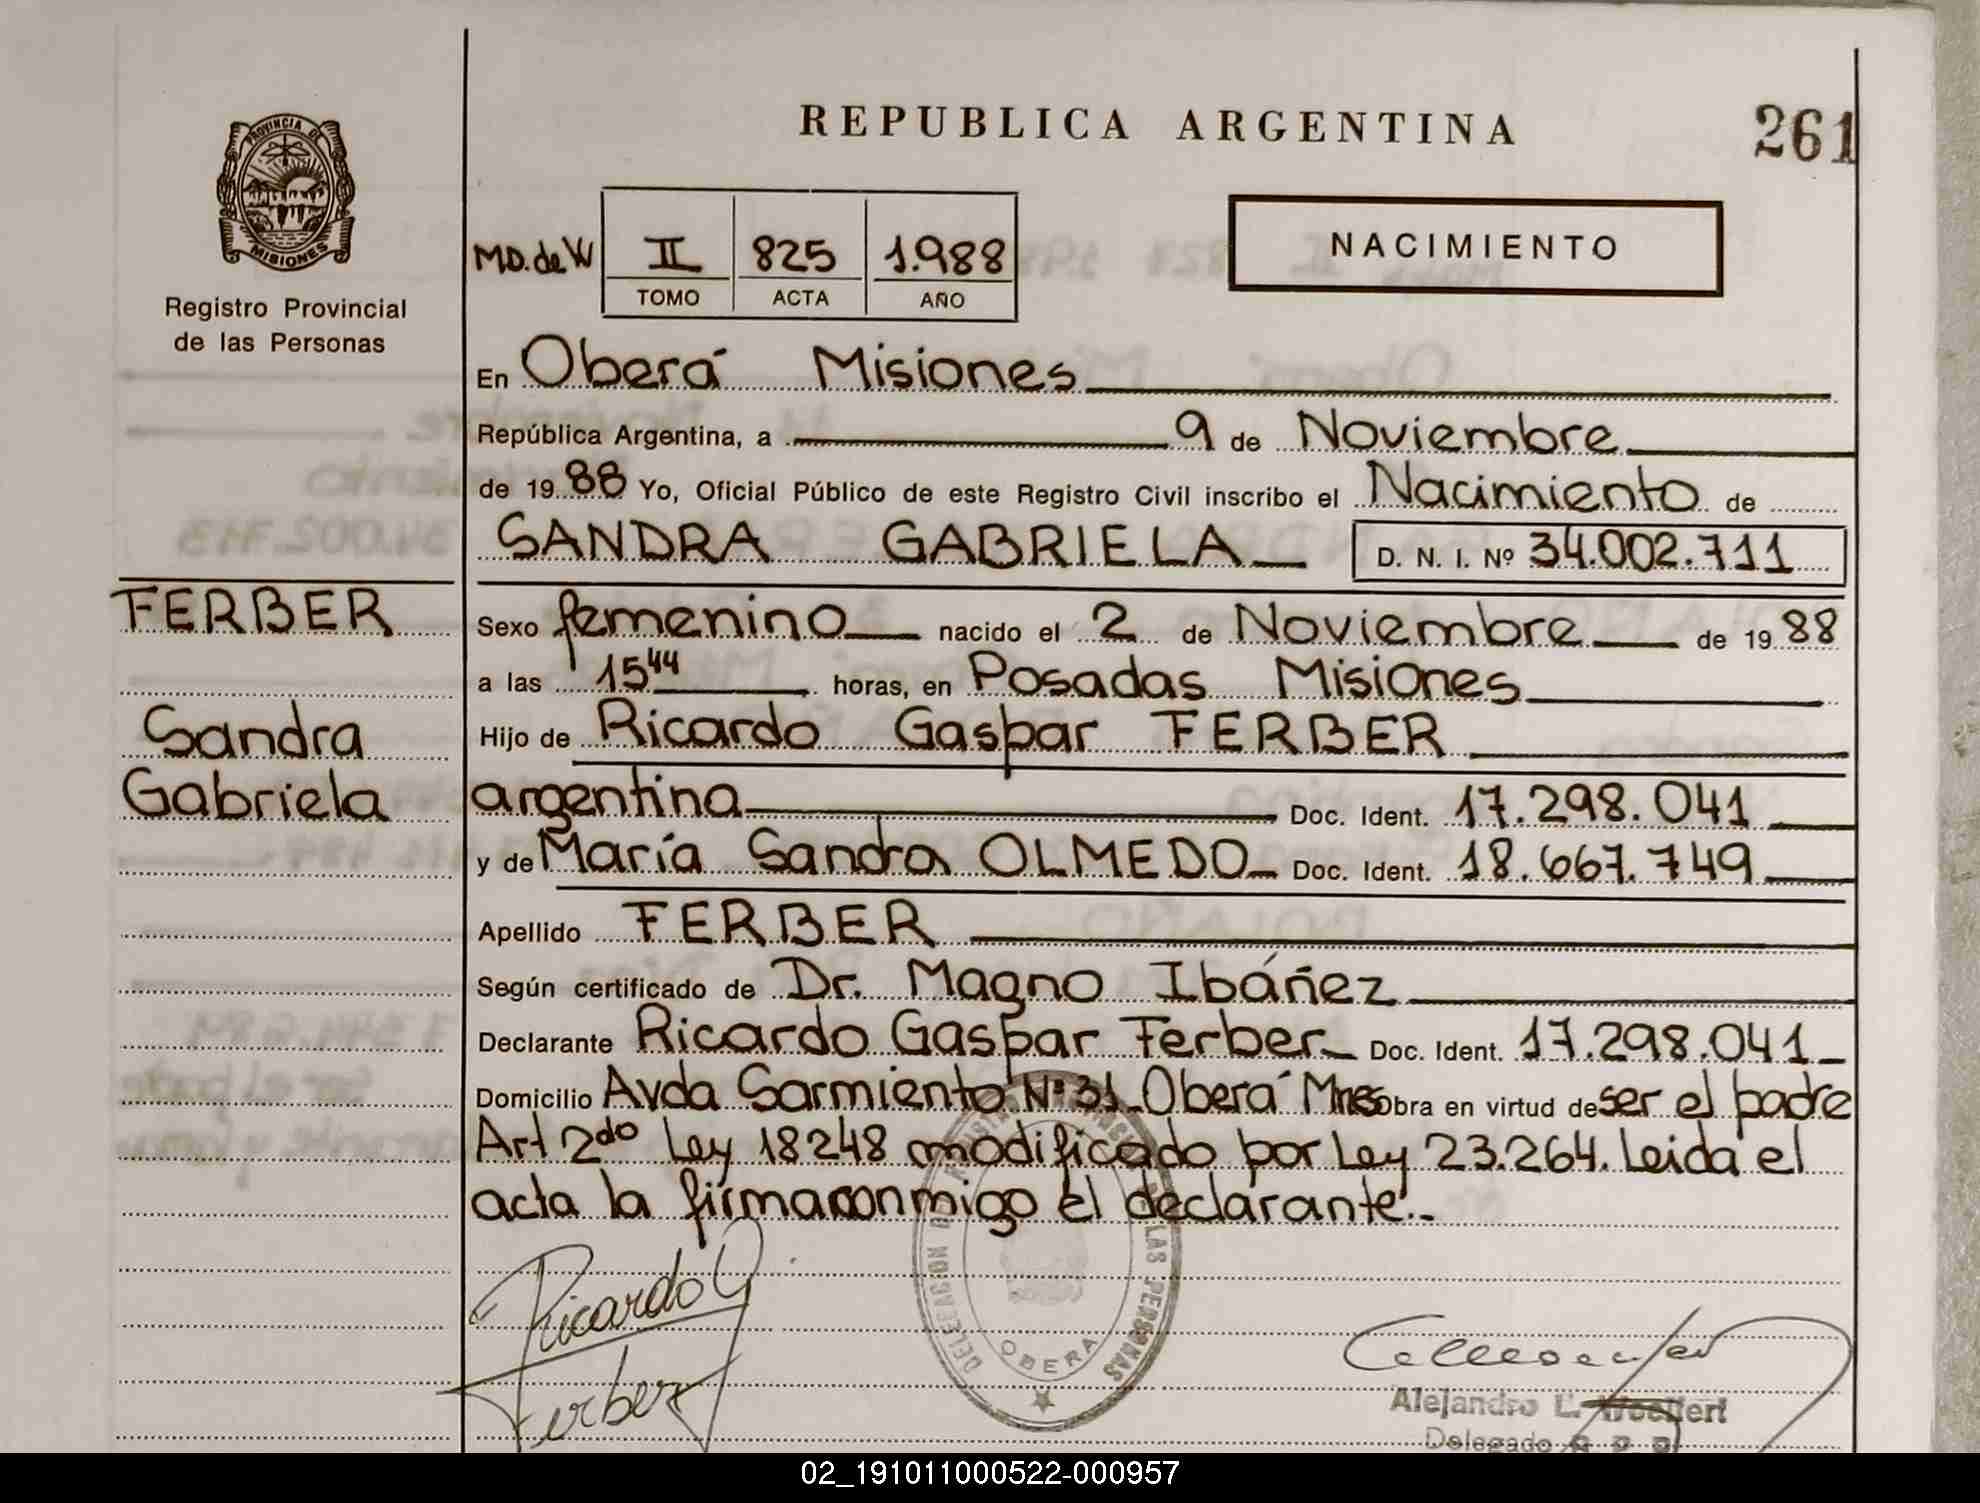 REPUBLICA ARGENTINA
261
PROVINCIA DE
MISIONES
Registro Provincial
de las Personas
NACIMIENTO
MD. de W II 825 1.988
TOMO ACTA AÑO
En Oberá Misiones
República Argentina, a 9 de Noviembre
de 1988 Yo, Oficial Público de este Registro Civil inscribo el Nacimiento de
SANDRA GABRIELA D. N. I. Nº 34.002.711
FERBER
Sandra
Gabriela
Sexo femenino nacido el 2 de Noviembre de 1988
a las 15 44 horas, en Posadas Misiones
Hijo de Ricardo Gaspar FERBER
argentina Doc. Ident. 17.298.041
y de María Sandra OLMEDO Doc. Ident. 18.667.749
Apellido FERBER
Según certificado de Dr. Magno Ibáñez
Declarante Ricardo Gaspar Ferber Doc. Ident. 17.298.041
Domicilio Avda Sarmiento Nº 31 Oberá Mnes Obra en virtud de ser el padre
Art 2do Ley 18248 modificado por Ley 23.264. Leida el
acta la firma conmigo el declarante.-
Ricardo G
Ferber
LAS PERSONAS
OBERA
Alejandro L. Woellert
Delegado
02_191011000522-000957